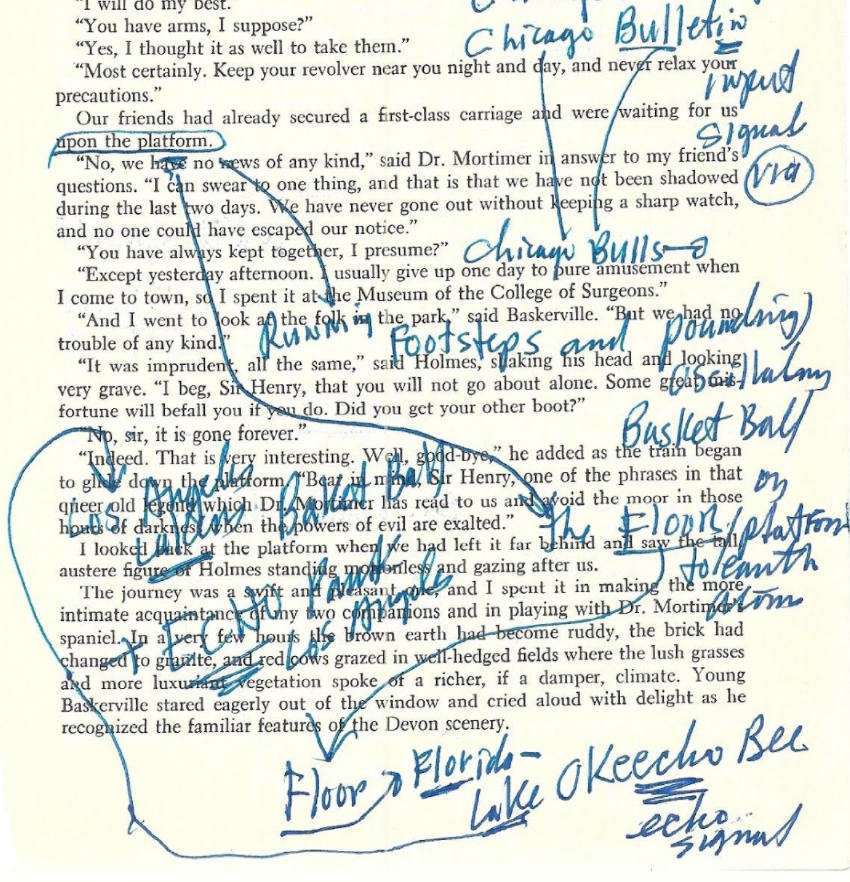 "I will do my best."
"You have arms, I suppose?"
"Yes, I thought it as well to take them."
Chicago Bulletin
"Most certainly. Keep your revolver near you night and day, and never relax your
precautions."
input
Our friends had already secured a first-class carriage and were waiting for us
signal
upon the platform.
"No, we have no news of any kind," said Dr. Mortimer in answer to my friend's
via
questions. "I can swear to one thing, and that is that we have not been shadowed
during the last two days. We have never gone out without keeping a sharp watch,
and no one could have escaped our notice."
"You have always kept together, I presume?"
Chicago Bulls
"Except yesterday afternoon. I usually give up one day to pure amusement when
I come to town, so I spent it at the Museum of the College of Surgeons."
"And I went to look at the folk in the park," said Baskerville. "But we had no
trouble of any kind."
Running Footsteps and pounding
"It was imprudent, all the same," said Holmes, shaking his head and looking
very grave. "I beg, Sir Henry, that you will not go about alone. Some great mis-
fortune will befall you if you do. Did you get your other boot?"
Basket Ball
"No, sir, it is gone forever."
"Indeed. That is very interesting. Well, good-bye," he added as the train began
to glide down the platform. "Bear in mind, Sir Henry, one of the phrases in that
queer old legend which Dr. Mortimer has read to us and avoid the moor in those
hours of darkness when the powers of evil are exalted."
on
Los Angeles
Lakers Basket Ball
the Floor/platform
to earth
atom
I looked back at the platform when we had left it far behind and saw the tall,
austere figure of Holmes standing motionless and gazing after us.
The journey was a swift and pleasant one, and I spent it in making the more
intimate acquaintance of my two companions and in playing with Dr. Mortimer's
spaniel. In a very few hours the brown earth had become ruddy, the brick had
changed to granite, and red cows grazed in well-hedged fields where the lush grasses
and more luxuriant vegetation spoke of a richer, if a damper, climate. Young
Baskerville stared eagerly out of the window and cried aloud with delight as he
recognized the familiar features of the Devon scenery.
+ ECHO Park
Los Angeles
Floor → Florida –
Lake OKeecho Bee
echo
signal